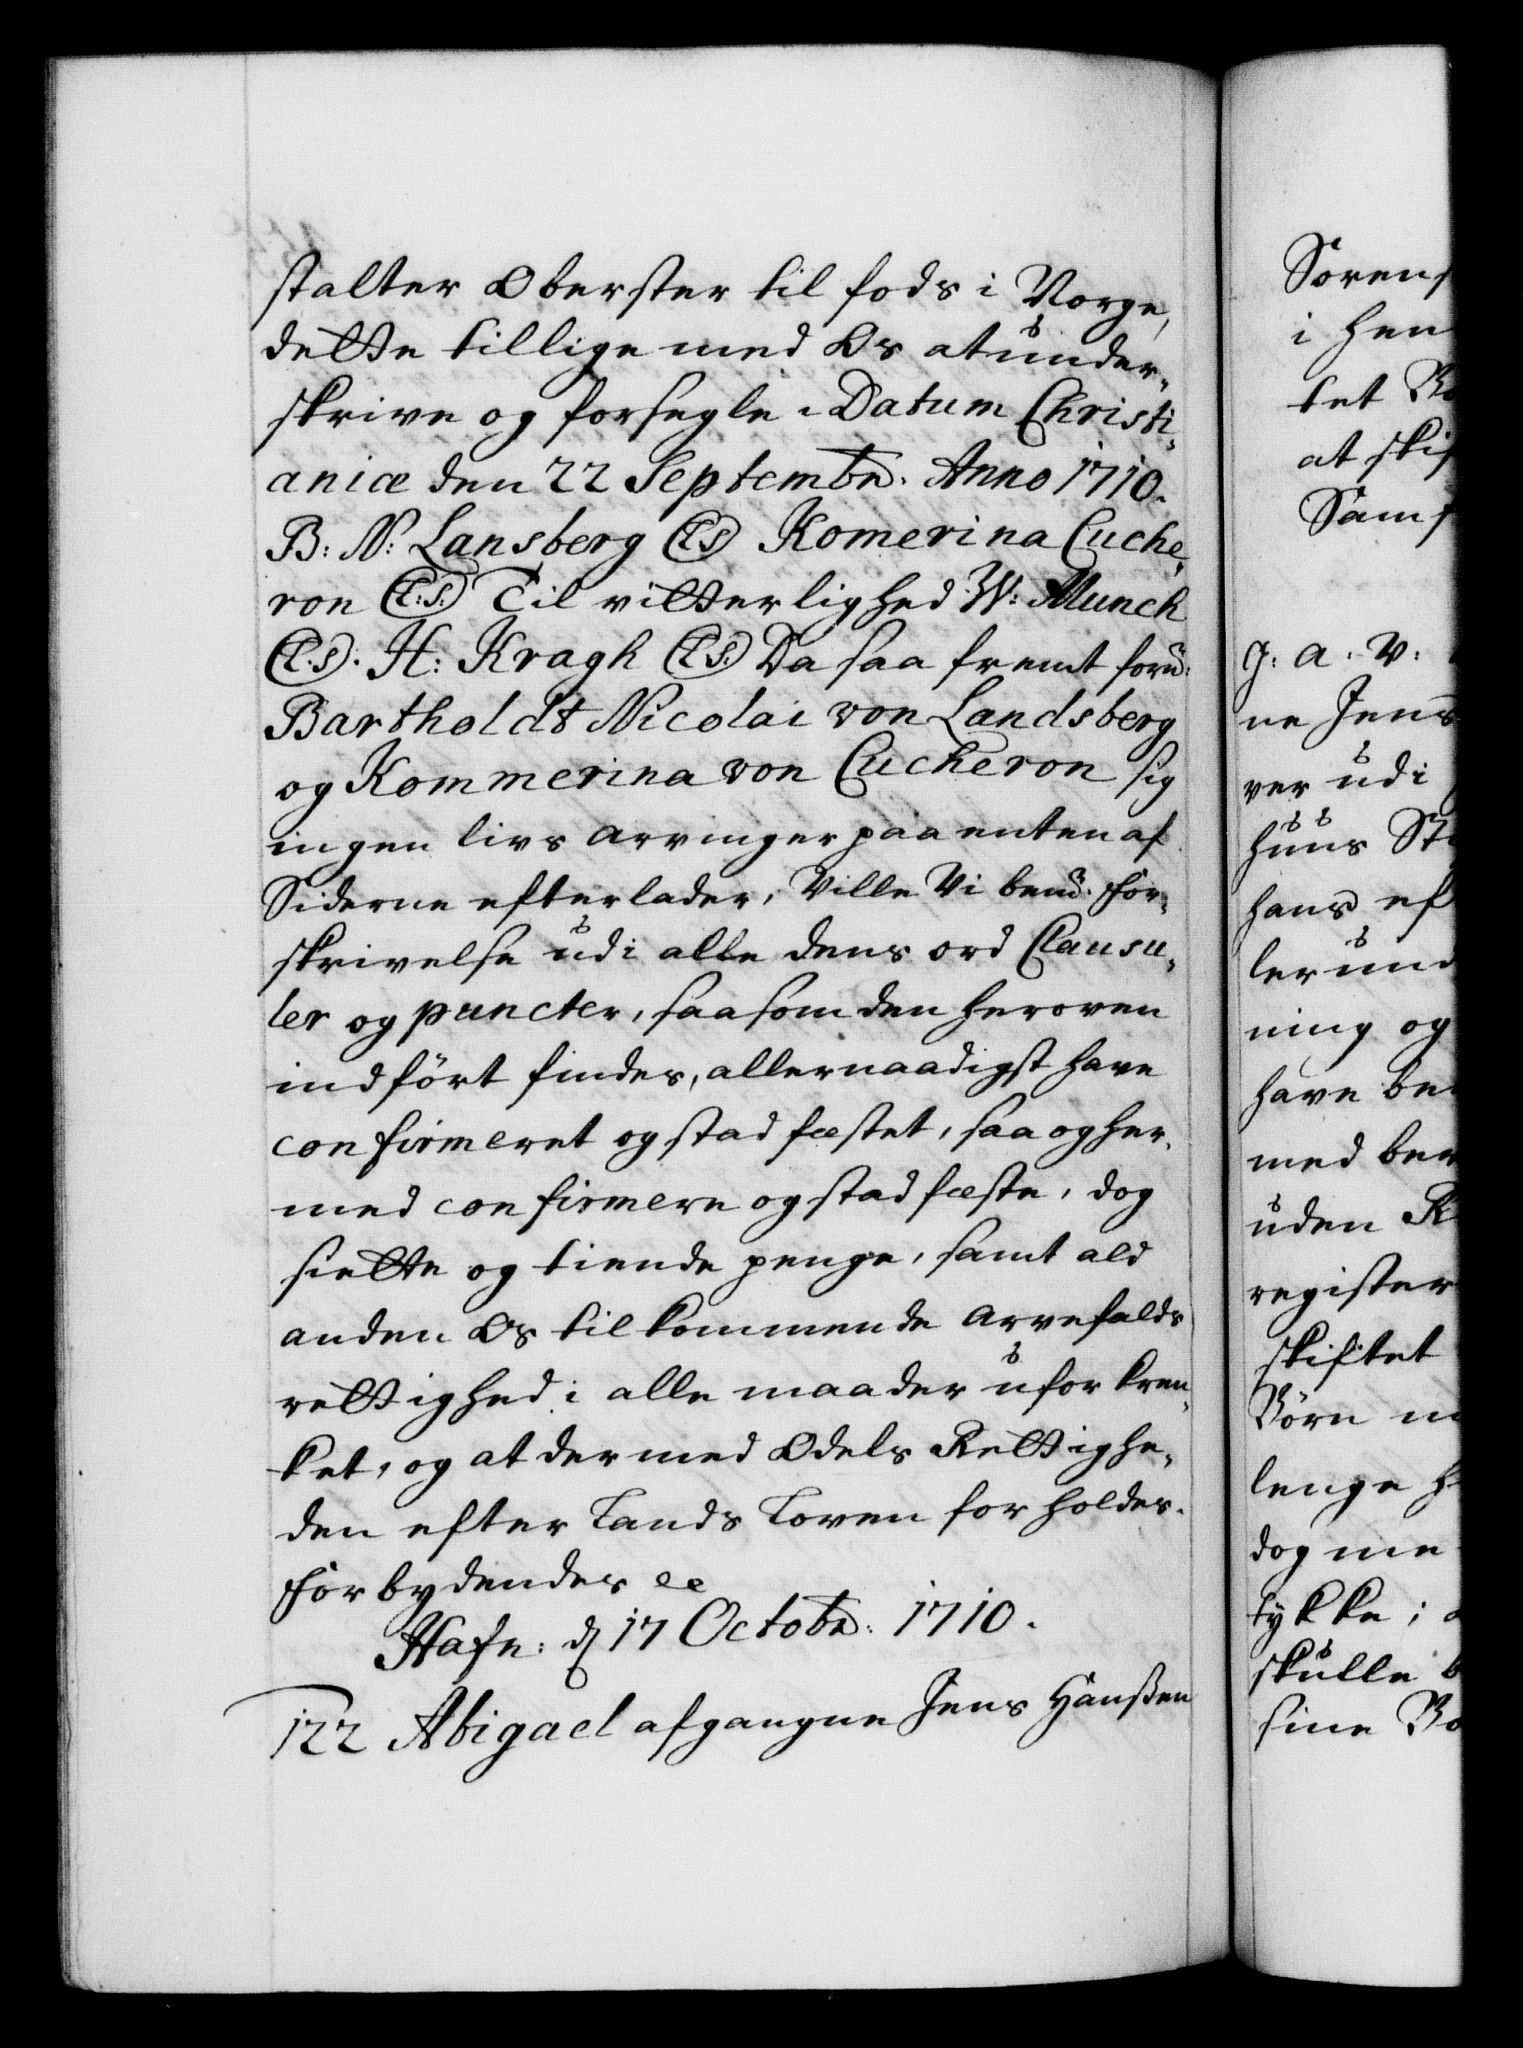 stalter Oberster til fods i Norge,
dette tillige med Os at under-
skrive og forsegle. Datum Christi-
aniæ den 22 Septembr. Anno 1710.
B: N: Lansberg (L.S.) Komerina Cuche,
ron (L:S:) Til vitterlighed W: Munch
(L.S). H: Kragh (L.S.) Da saa fremt forn:
Bartholdt Nicolai von Landsberg
og Kommerina von Cucheron sig
ingen livs arvinger paa enten af
Siderne efterlader, Ville Vi bemt. For-
skrivelse udi alle dens ord Clausu-
ler og puncter, saasom den heroven
indført findes, allernaadigst have
confirmeret og stadfæstet, saa og her-
med confirmere og stadfæste, dog
siette og tiende penge, samt ald
anden Os tilkommende arvefalds
rettighed i alle maader uforkren-
ket, og at dermed Odels Rettighe-
den efter Lands Loven forholdes.
Forbydendes ee
Hafn: d 17 Octobr: 1710.
122 Abigael afgangne Jens Hanßen
Sørens
i hen
tet Bo
at skif
Samf
G: A. V:
ne Jens
ver udi
huus St
hans ef
ler und
ning og
have be
med ber
uden R
register
skiftet
Børn m
lenge h
dog me
tykke;
skulle b
sine Bo